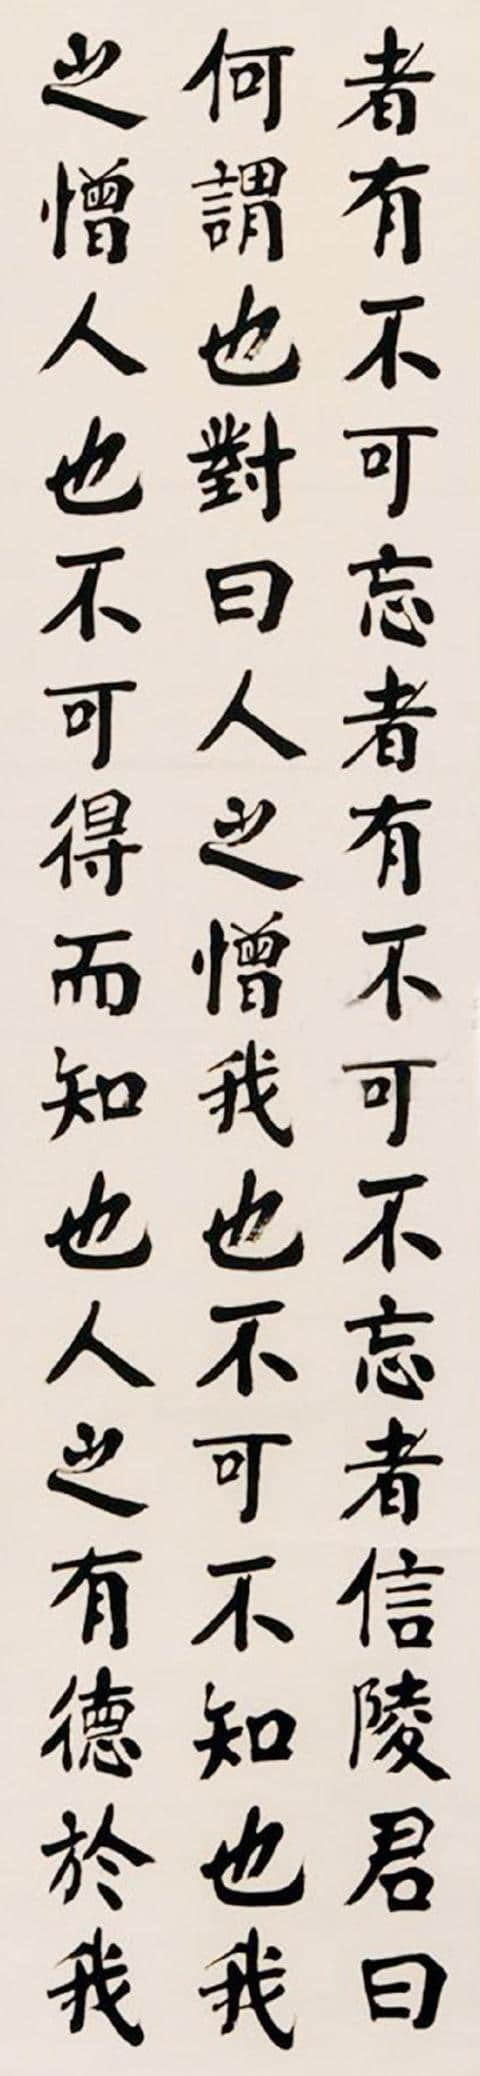 者有不可忘者有不可不忘者信陵君曰
何謂也對曰人之憎我也不可不知也我
之憎人也不可得而知也人之有德於我